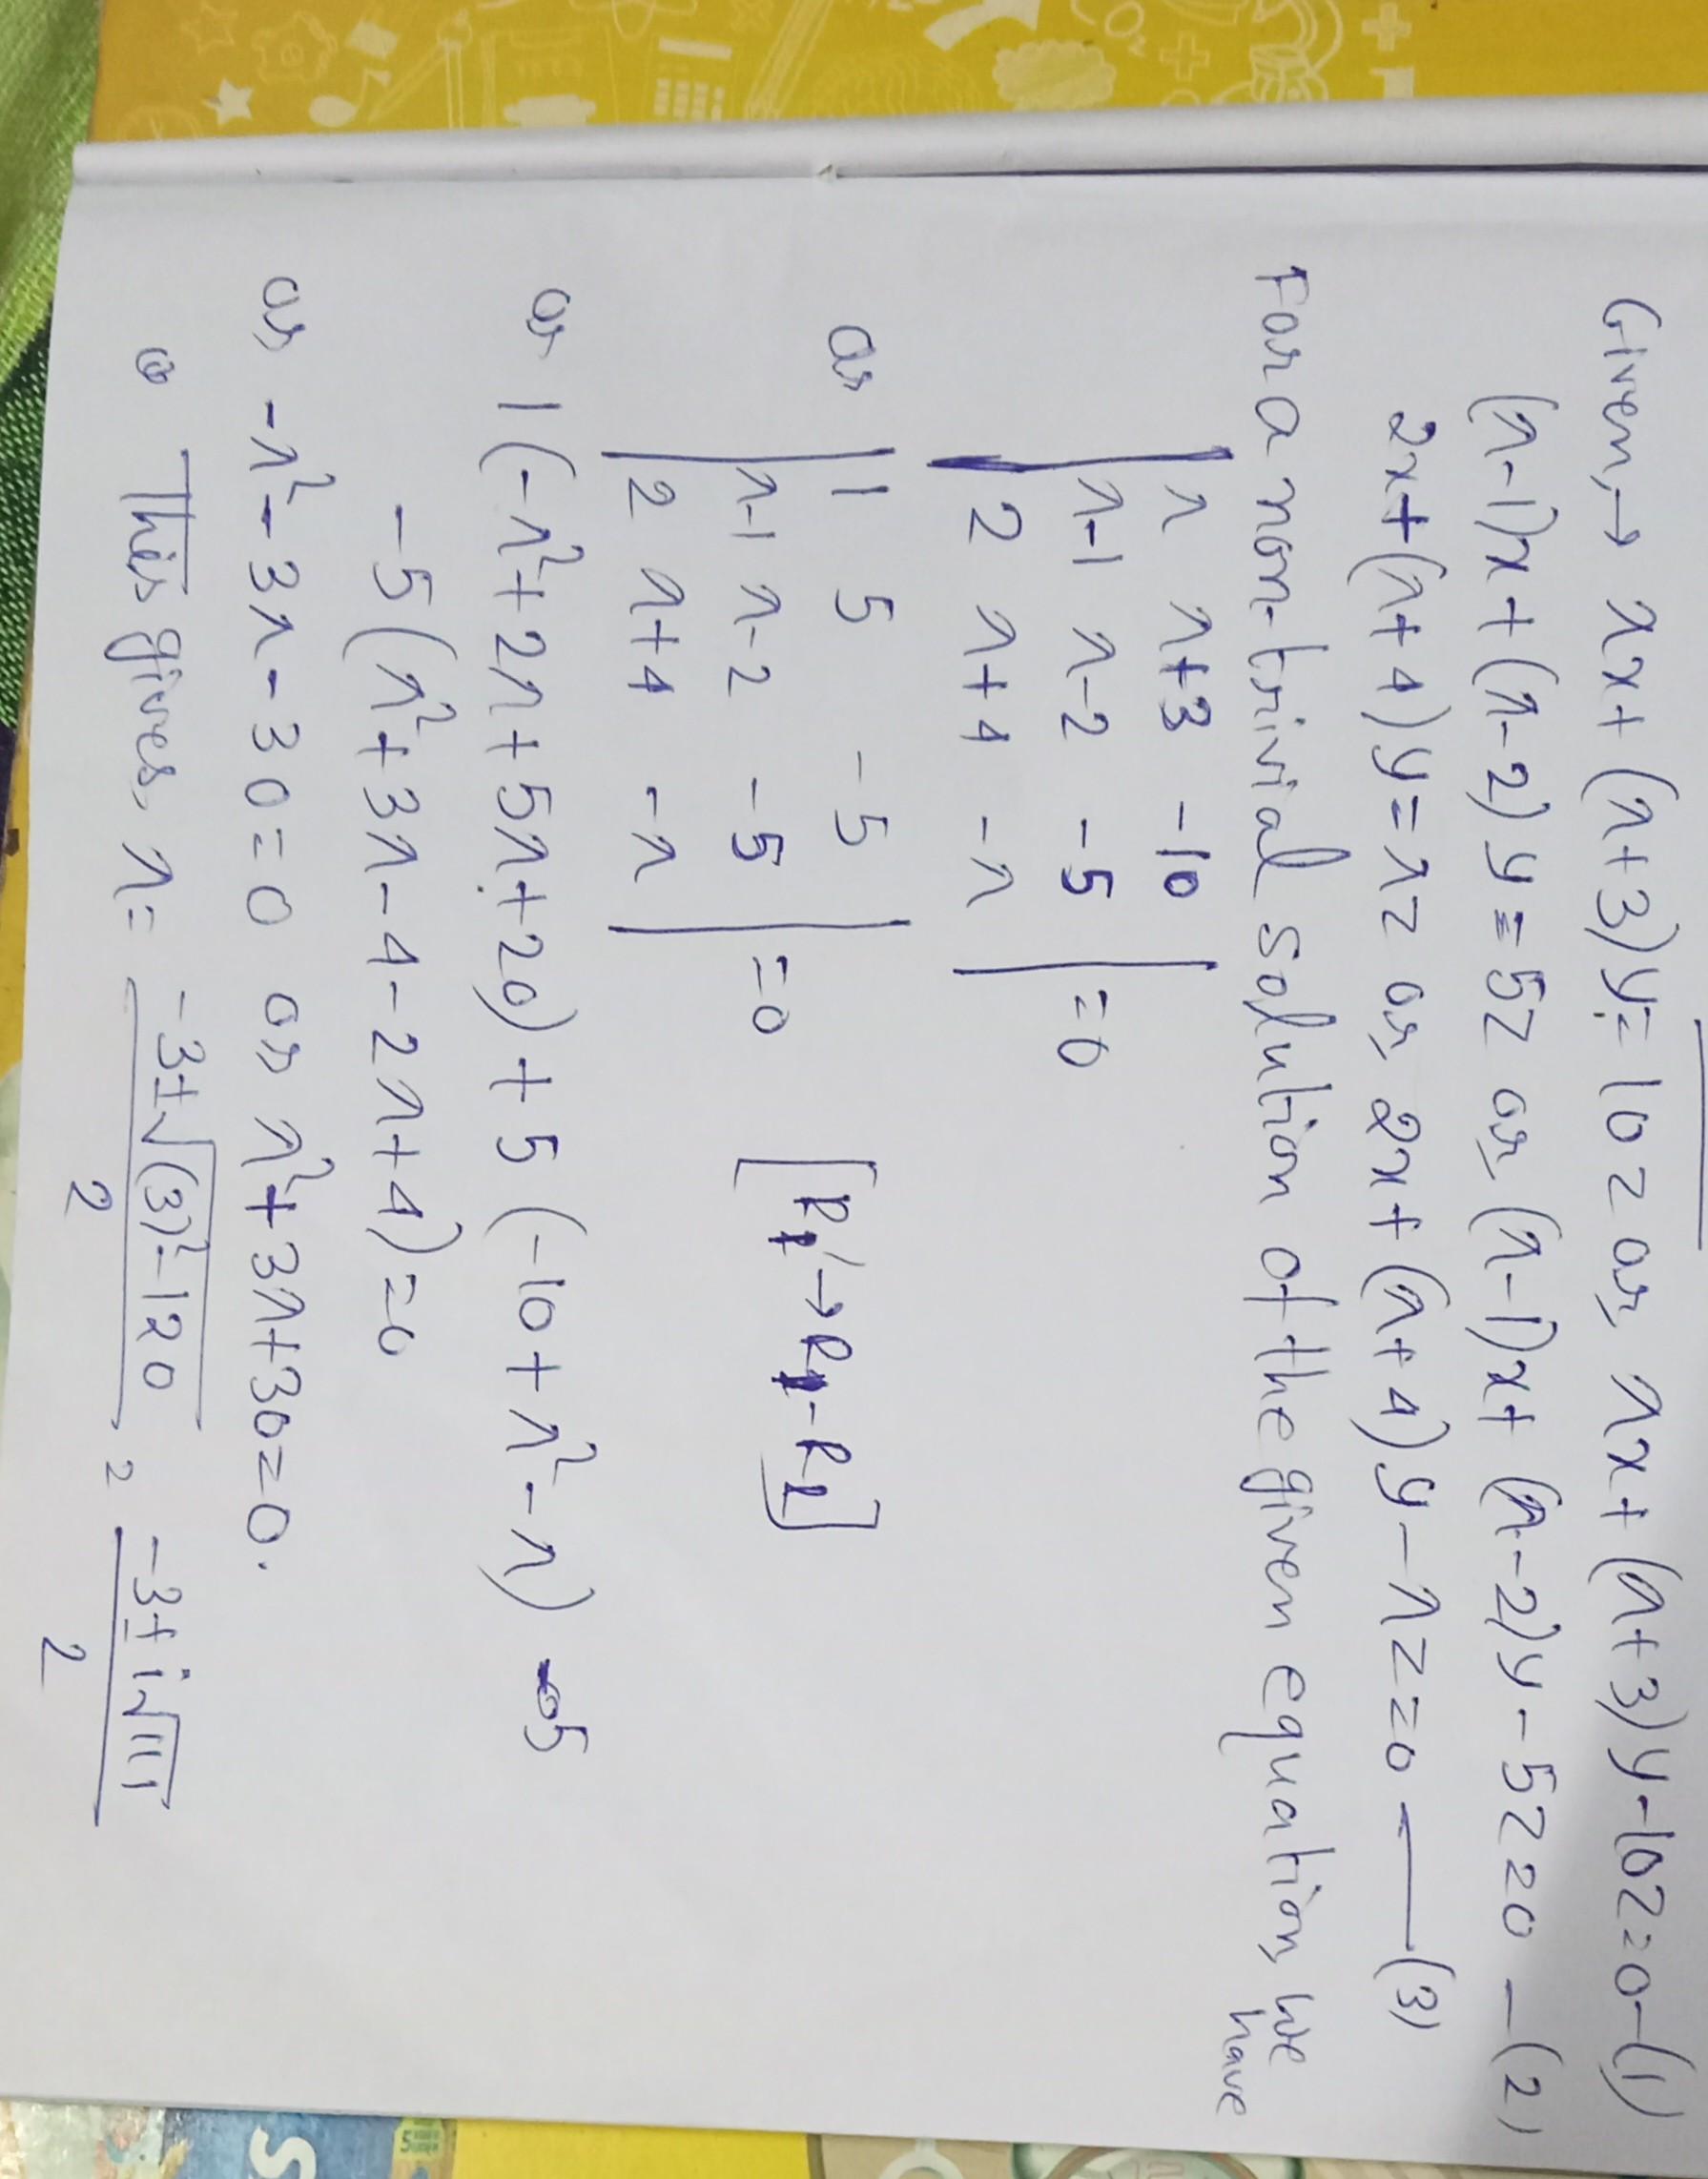 Given,→ λx+(λ+3)y=10z or, λx+(λ+3)y-10z=0—(1)
(λ-1)x+(λ-2)y=5z or, (λ-1)x+(λ-2)y-5z=0—(2)
2x+(λ+4)y=λz or, 2x+(λ+4)y-λz=0—(3)
For a non-trivial solution of the given equation, we have
| λ λ+3 -10 |
| λ-1 λ-2 -5 | =0
| 2 λ+4 -λ |
or | 1 5 -5 |
| λ-1 λ-2 -5 | =0 [R₁'→R₁-R₂]
| 2 λ+4 -λ |
or 1(-λ²+2λ+5λ+20)+5(-10+λ²-λ)-5
-5(λ²+3λ-4-2λ+4)=0
or -λ²-3λ-30=0 or λ²+3λ+30=0.
This gives, λ= (-3±√(3)²-120)/2, = (-3±i√111)/2
5
S
O₂